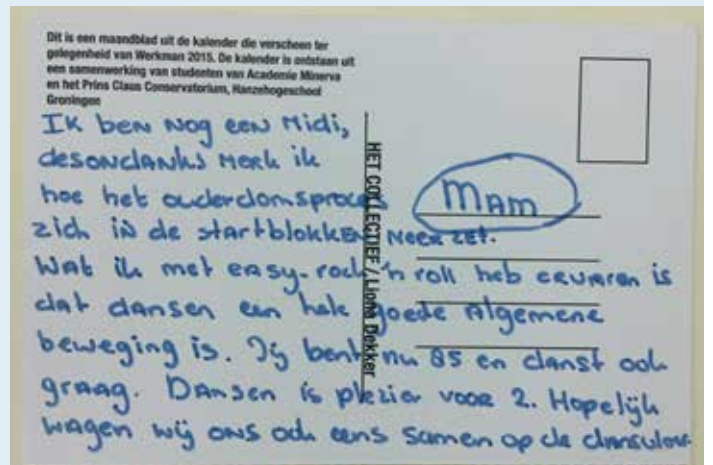 Dit is een maandblad uit de kalender die verscheen ter
gelegenheid van Werkman 2015. De kalender is ontstaan uit
een samenwerking van studenten van Academie Minerva
en het Prins Claus Conservatorium, Hanzehogeschool
Groningen
Ik ben nog een Midi,
desondanks merk ik
hoe het ouderdomsproces
zich in de startblokken neerzet.
Wat ik met easy-rock 'n roll heb ervaren is
dat dansen een hele goede algemene
beweging is. Jij bent nu 85 en danst ook
graag. Dansen is plezier voor 2. Hopelijk
wagen wij ons ook eens samen op de dansvloer
MAM
HET COLLECTIEF / Liona Dekker